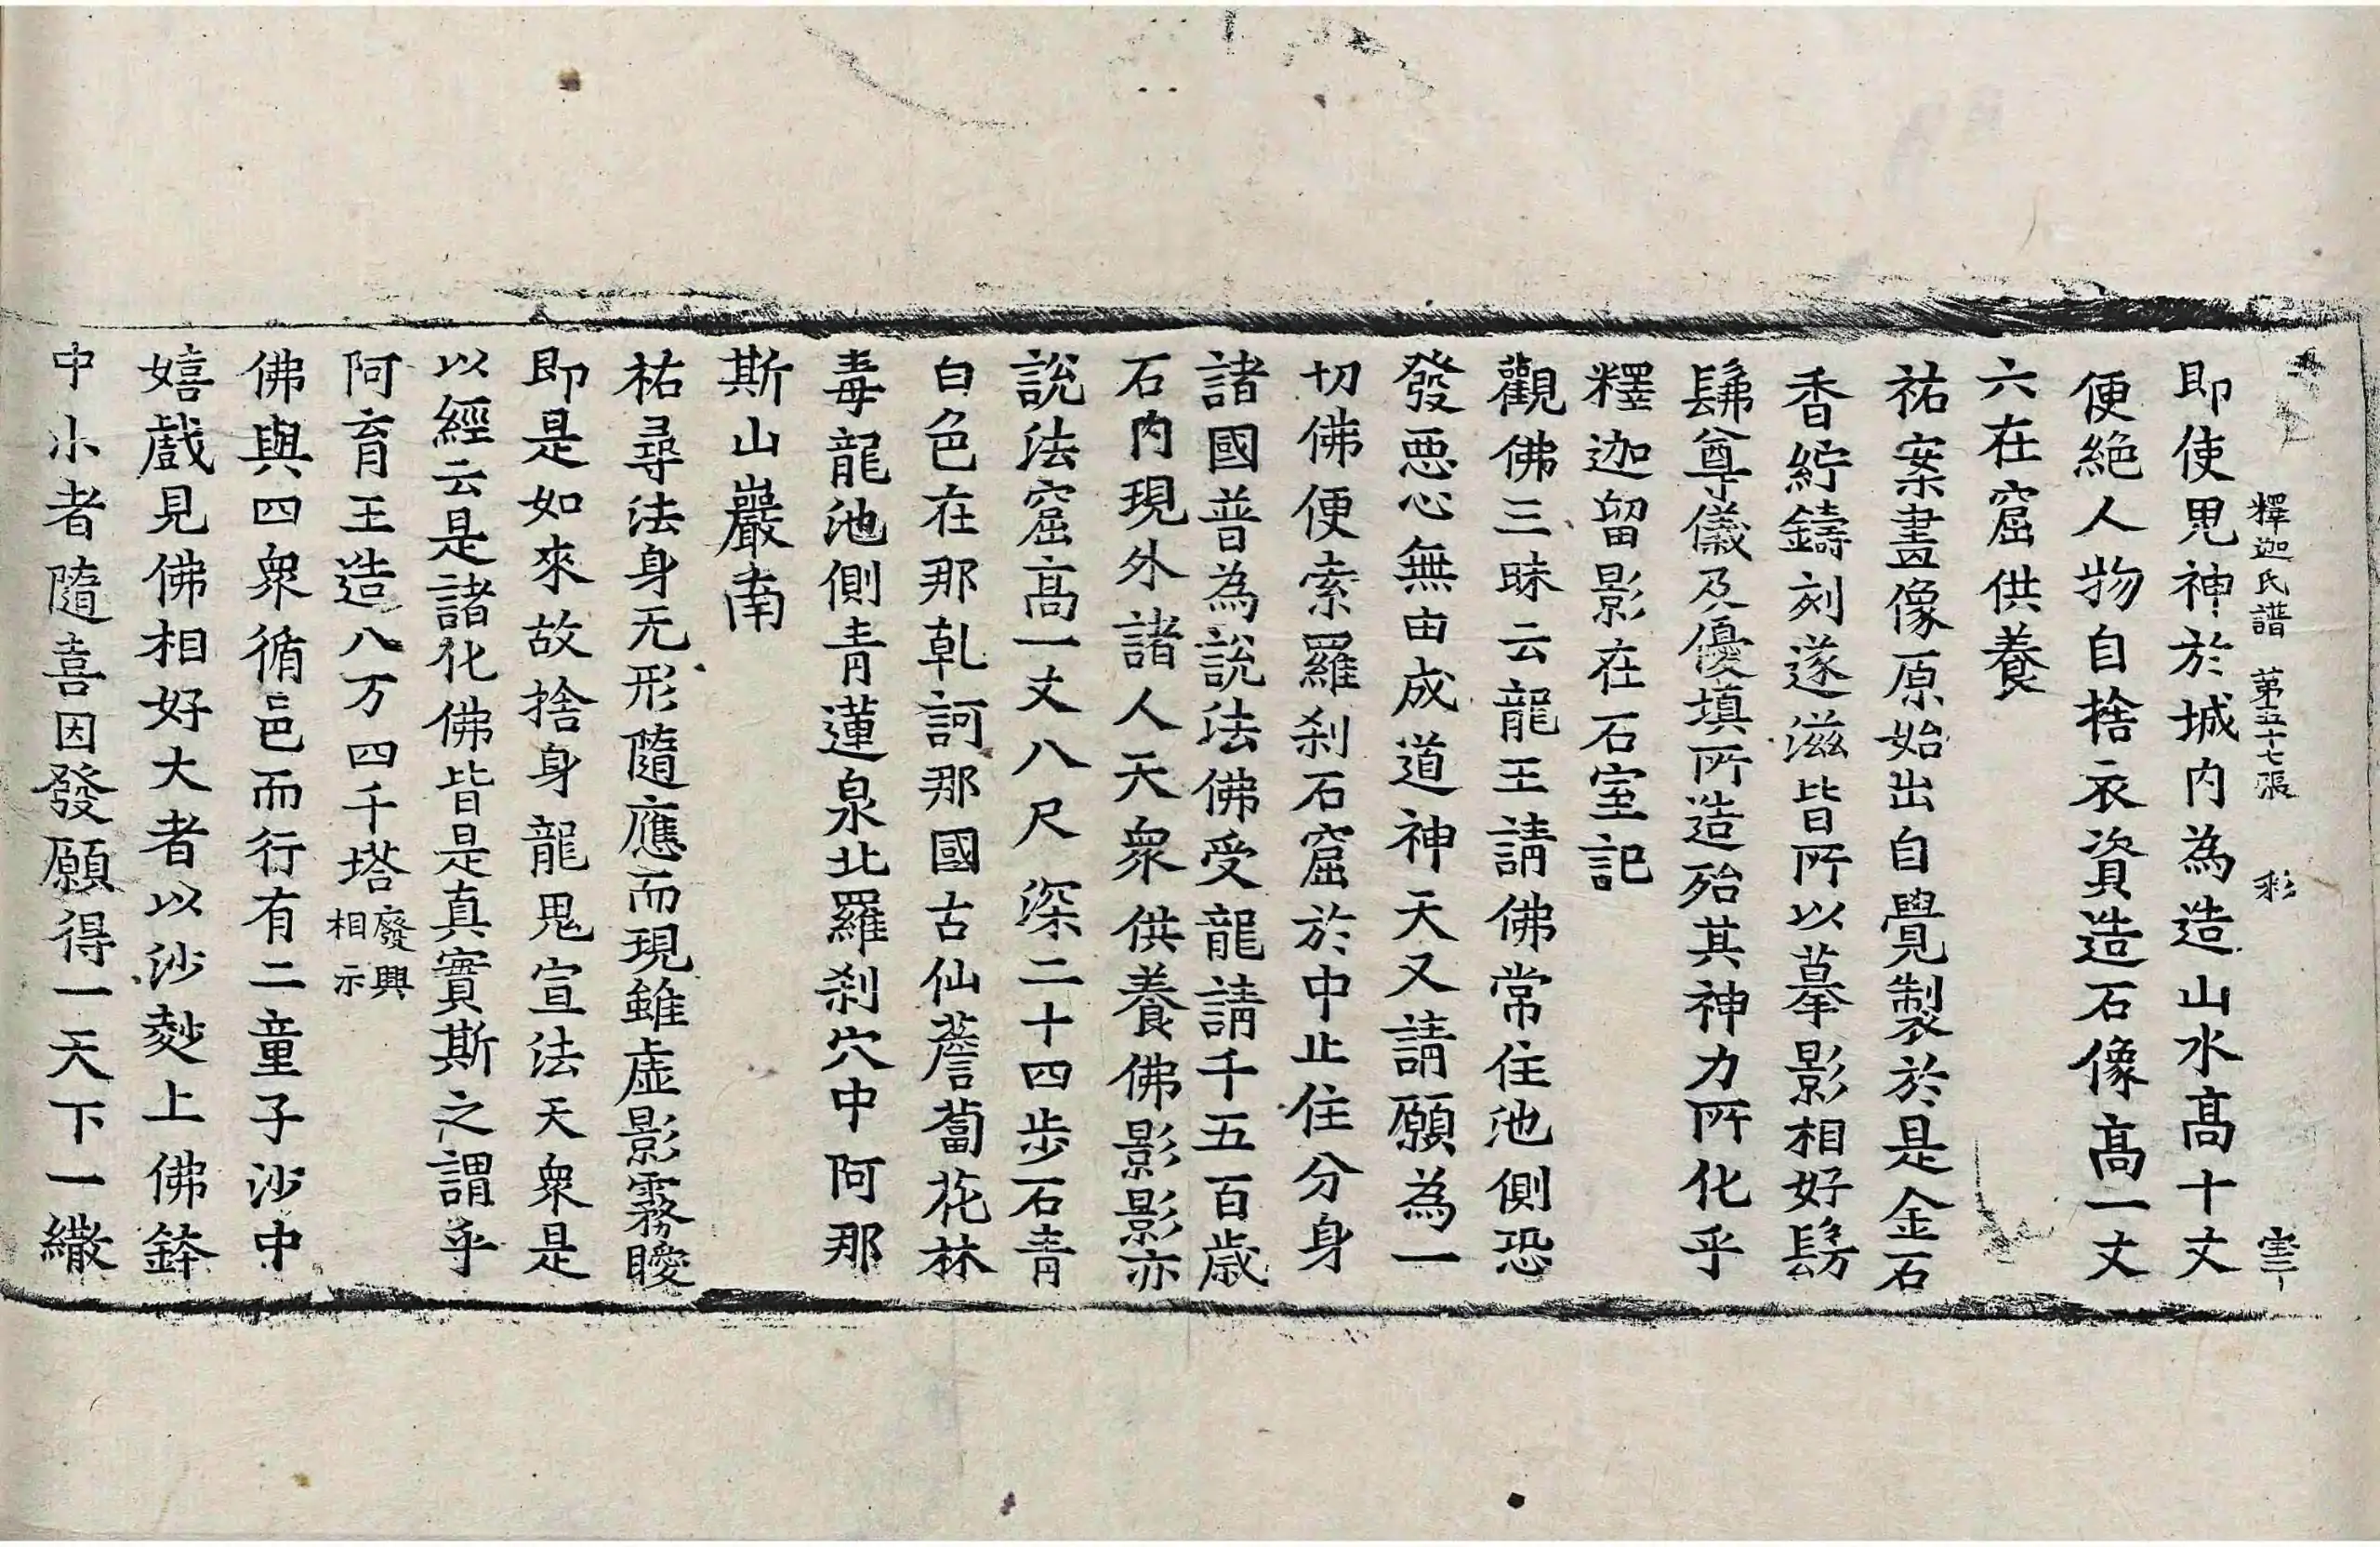 釋迦氏譜 第五十七張 彩
即使鬼神於城内為造山水高十丈
便絶人物自捨衣資造石像高一丈
六在窟供養
祐案畫像原始出自覺製於是金石
香紵鑄刻遂滋皆所以摹影相好髣
髴尊儀及優填所造殆其神力所化乎
釋迦留影在石室記
觀佛三昧云龍王請佛常住池側恐
發惡心無由成道神天又請願為一
切佛便索羅刹石窟於中止住分身
諸國普為說法佛受龍請千五百歳
石内現外諸人天衆供養佛影影亦
說法窟高一丈八尺深二十四步石青
白色在那乹訶那國古仙薝蔔花林
毒龍池側青蓮泉北羅刹穴中阿那
斯山巖南
祐尋法身无形隨應而現雖虛影霧曖
即是如來故捨身龍鬼宣法天衆是
以經云是諸化佛皆是真實斯之謂乎
阿育王造八万四千塔廢興相示
佛與四衆循邑而行有二童子沙中
嬉戲見佛相好大者以沙麨上佛鉢
中小者隨喜因發願得一天下一繖